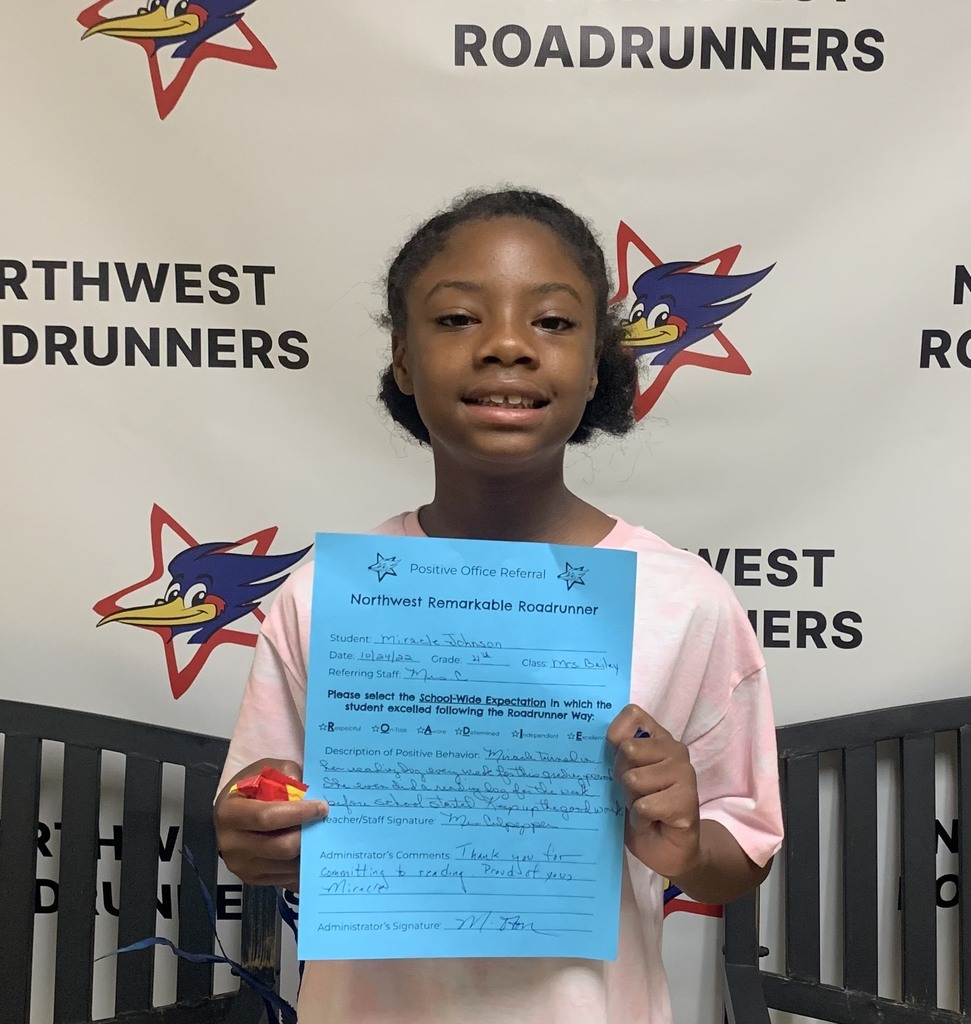 ROADRUNNERS
RTHWEST
DRUNNERS
N
RO
WEST
NERS
RTHW
DRUNNE
N
RO
Positive Office Referral
Northwest Remarkable Roadrunner
Student: Miracle Johnson
Date: 10/24/22 Grade: 4th Class: Mrs Bailey
Referring Staff: Mrs. C
Please select the School-Wide Expectation in which the
student excelled following the Roadrunner Way:
Respectful On-Task Aware Determined Independent Excellence
Description of Positive Behavior: Miracle Turned in
her reading log every week for this grading period
She even did a reading log for the week
before school started Keep up the good work
Teacher/Staff Signature: Mrs Culpepper
Administrator's Comments: Thank you for
committing to reading. Proud of you
Miracle
Administrator's Signature: